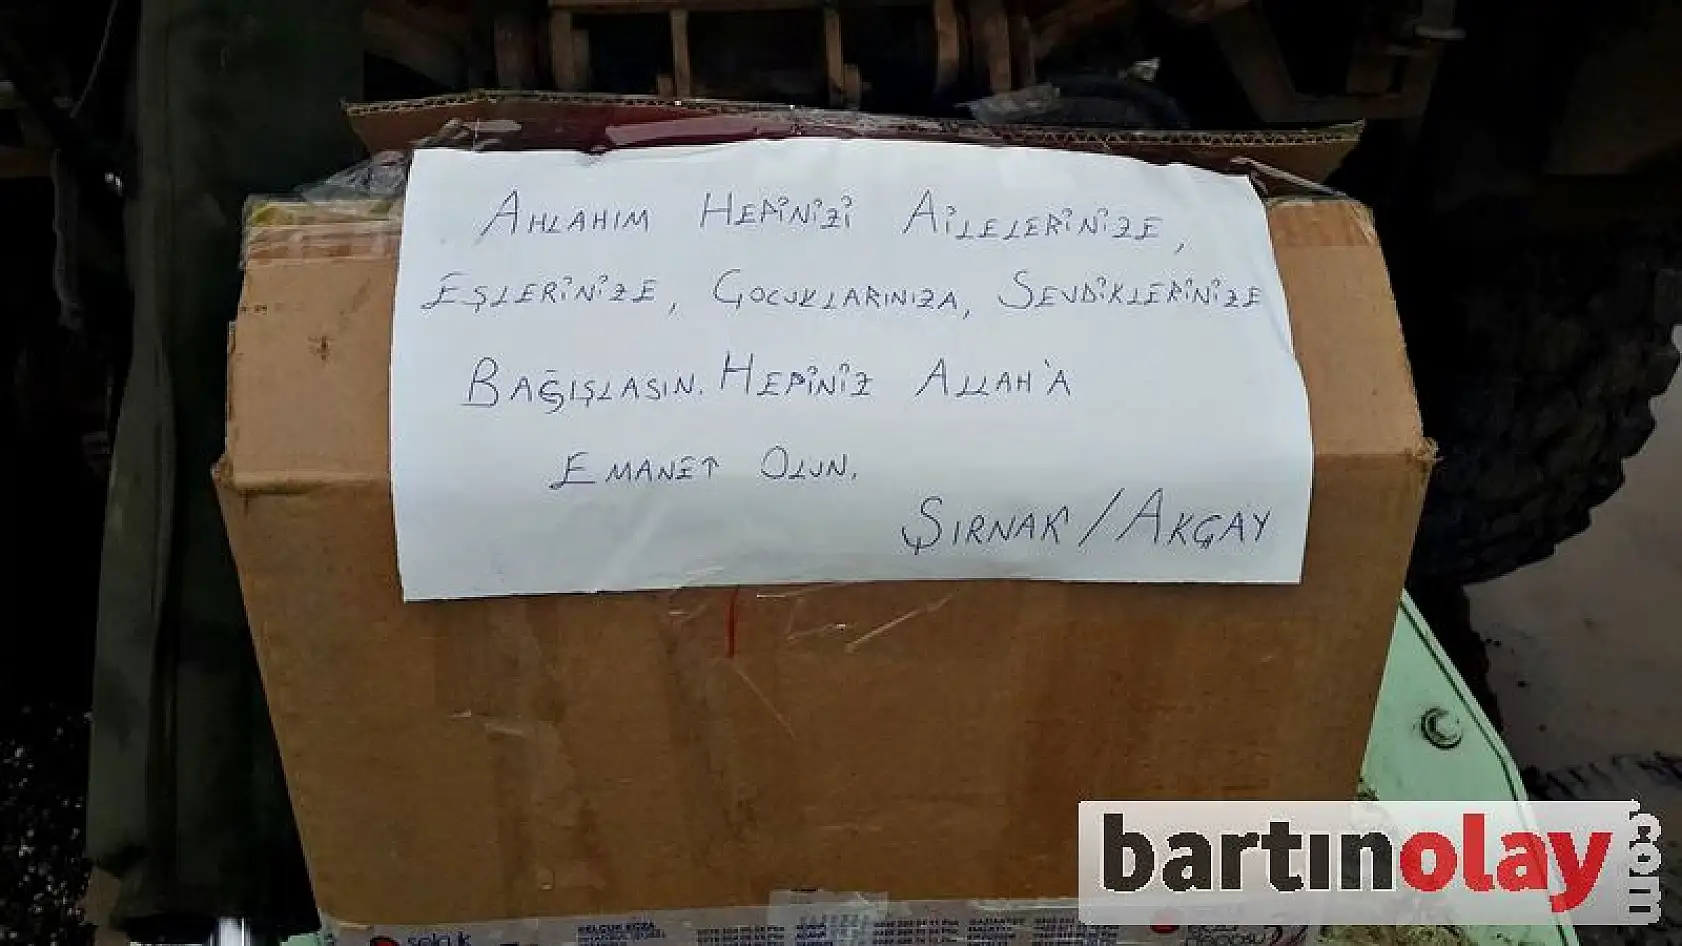 AHLAHIM HEPİNİZİ AİLELERİNİZE,
EŞLERİNİZE, ÇOCUKLARINIZA, SEVDİKLERİNİZE
BAĞIŞLASIN. HEPİNİZ ALLAH'A
EMANET OLUN.
ŞIRNAK / AKÇAY
bartınolay.com
selçuk
SELÇUK ECZA